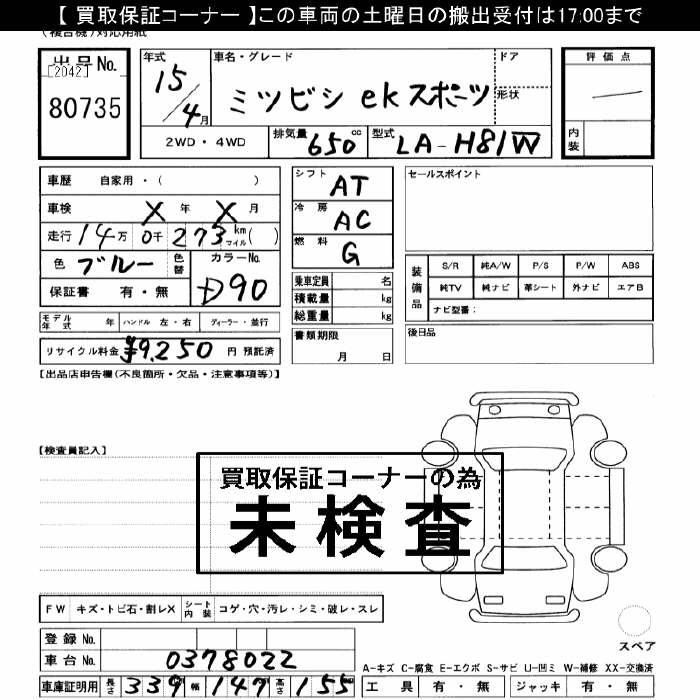 【 買取保証コーナー 】この車両の土曜日の搬出受付は17:00まで
(複合機)対応用紙
出品No.
[2042]
80735
年式
15/4月
車名・グレード
ミツビシ ekスポーツ
ドア
形状
2WD・4WD
排気量 650 cc
型式 LA-H81W
評価点
内装
車歴 自家用・( )
車検 X 年 X 月
走行 14万 0千 273 km マイル ( )
色 ブルー 色替
カラーNo. D90
保証書 有・無
モデル年式 年 ハンドル 左・右 ディーラー・並行
リサイクル料金 ¥9,250 円 預託済
シフト AT
冷房 AC
燃料 G
乗車定員 名
積載量 kg
総重量 kg
書類期限
月 日
セールスポイント
装備品
S/R 純A/W P/S P/W ABS
純TV 純ナビ 革シート 外ナビ エアB
ナビ型番:
後日品
【出品店申告欄(不良箇所・欠品・注意事項等)】
【検査員記入】
買取保証コーナーの為
未検査
FW キズ・トビ石・割レX シート内装 コゲ・穴・汚レ・シミ・破レ・スレ
登録 No.
車台 No. 0378022
車庫証明用 長さ 339 幅 147 高さ 155
スペア
A-キズ C-腐食 E-エクボ S-サビ U-凹ミ W-補修 XX-交換済
工具 有・無 ジャッキ 有・無